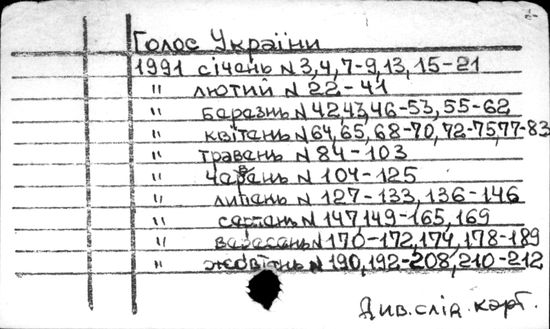 Голос України
1991 січень N 3,4,7-9,13,15-21
" лютий N 22-41
" березнь N 42,43,46-53,55-62
" квітень N 64,65,68-70,72-75,77-83
" травень N 84-103
" червень N 104-125
" липень N 127-133,136-146
" серпень N 147,149-165,169
" вересень N 170-172,174,178-189
" жовтень N 190,192-208,210-212
Див. слід. карт.